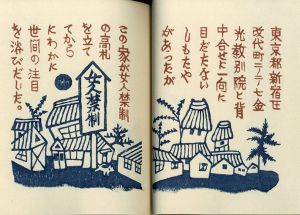 東京都新宿区
改代町二十七金
光教別院と背
中合せに一向に
目だたない
しもたや
があったが
この家が女人禁制
の高札
を立て
てから
にわかに
世間の注目
を浴びだした。
女人禁制